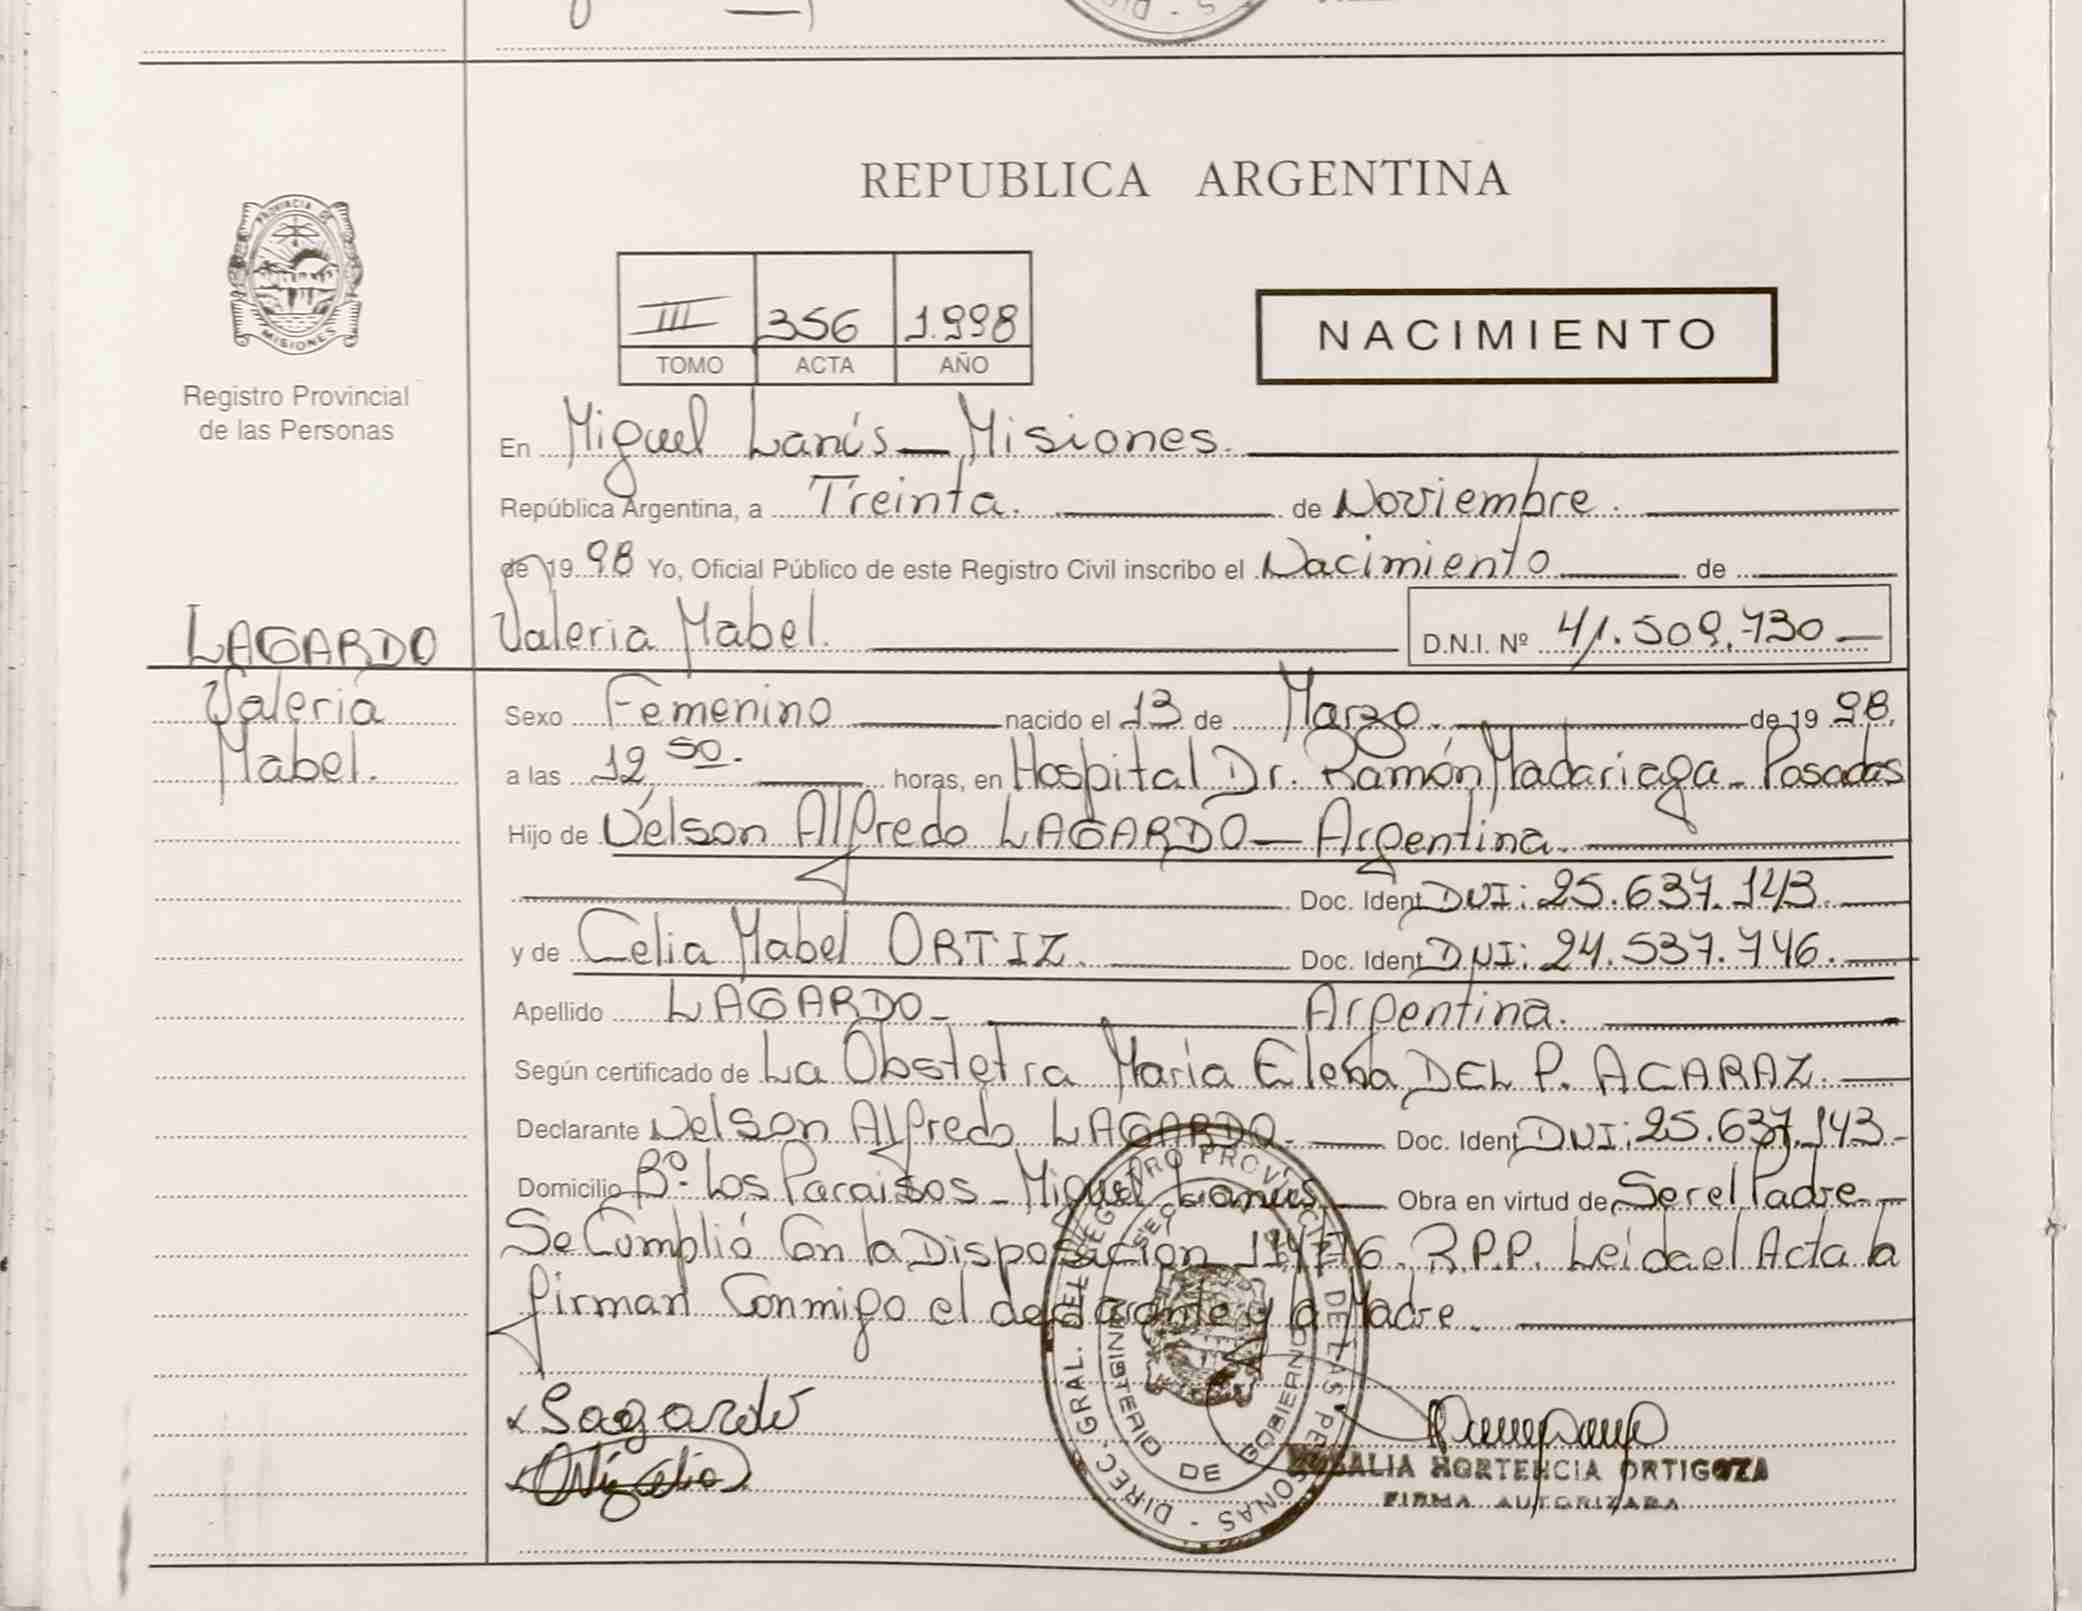 REPUBLICA ARGENTINA
PROVINCIA DE
MISIONES
Registro Provincial
de las Personas
III 356 1.998
TOMO ACTA AÑO
NACIMIENTO
En Miguel Lanús - Misiones.
República Argentina, a Treinta. de Noviembre.
de 19 98 Yo, Oficial Público de este Registro Civil inscribo el Nacimiento de
LAGARDO
Valeria Mabel. D.N.I. Nº 41.509.730
Valeria
Mabel.
Sexo Femenino nacido el 13 de Marzo. de 19 98.
a las 12 50. horas, en Hospital Dr. Ramón Madariaga - Posadas
Hijo de Nélson Alfredo LAGARDO - Argentina.
Doc. Ident. DNI: 25.637.143.
y de Celia Mabel ORTIZ. Doc. Ident. DNI: 24.537.746.
Apellido LAGARDO - Argentina.
Según certificado de La Obstetra María Elena DEL P. ACARAZ.
Declarante Nelson Alfredo LAGARDO. Doc. Ident. DNI: 25.637.143
Domicilio Bº. Los Paraisos - Miguel Lanus Obra en virtud de Ser el Padre
Se Cumplió Con la Disposición 114/76. R.P.P. Leida el Acta la
firman Conmigo el declarante y la Madre.
DIREC. GRAL. DEL REGISTRO PROVINCIAL DE LAS PERSONAS
MINISTERIO DE GOBIERNO
Lagardo
Ortiz Celia
ROSALIA HORTENCIA ORTIGOZA
FIRMA AUTORIZADA